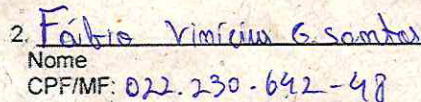 2. Fábio Vinícius G. Santos
Nome
CPF/MF: 022.230.642-48